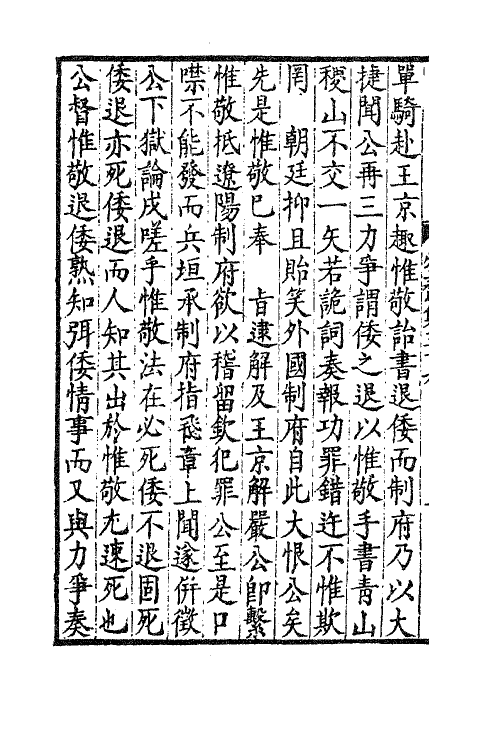 單騎赴王京趣惟敬詒書退倭而制府乃以大
捷聞公再三力爭謂倭之退以惟敬手書青山
稷山不交一矢若詭詞奏報功罪錯迕不惟欺
罔　朝廷抑且貽笑外國制府自此大恨公矣
先是惟敬已奉　旨逮解及王京解嚴公卽繫
惟敬抵遼陽制府欲以稽留欽犯罪公至是口
噤不能發而兵垣承制府指飛章上聞遂併徵
公下獄論戍嗟乎惟敬法在必死倭不退固死
倭退亦死倭退而人知其出於惟敬尤速死也
公督惟敬退倭熟知弭倭情事而又與力爭奏